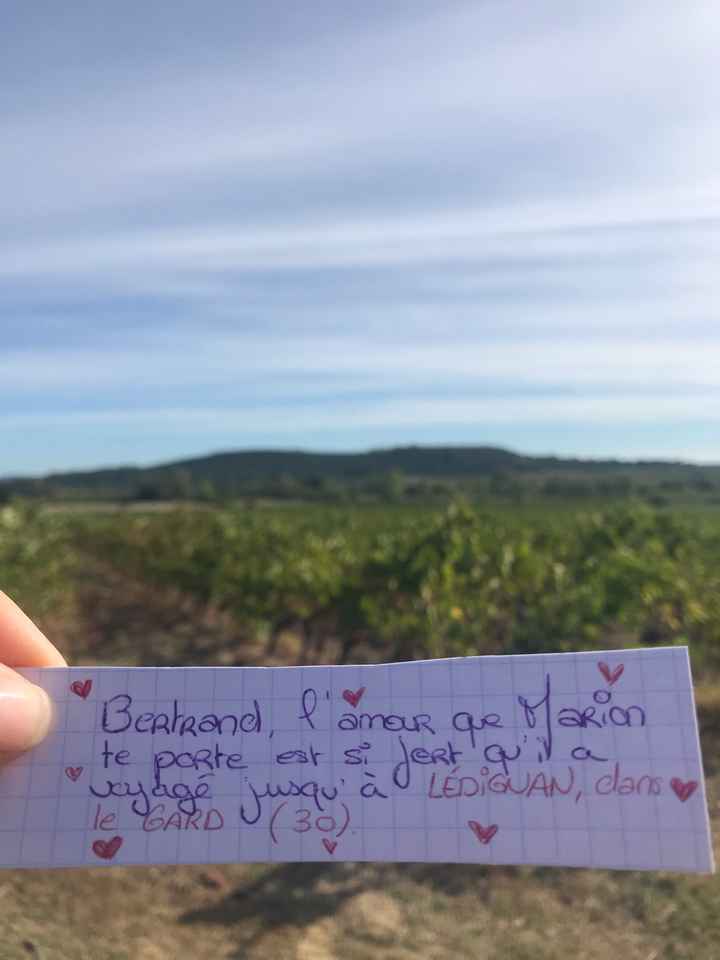 Bertrand, l'amour que Marion
te porte est si fort qu'il a
voyagé jusqu'à LÉDIGNAN, dans
le GARD (30).